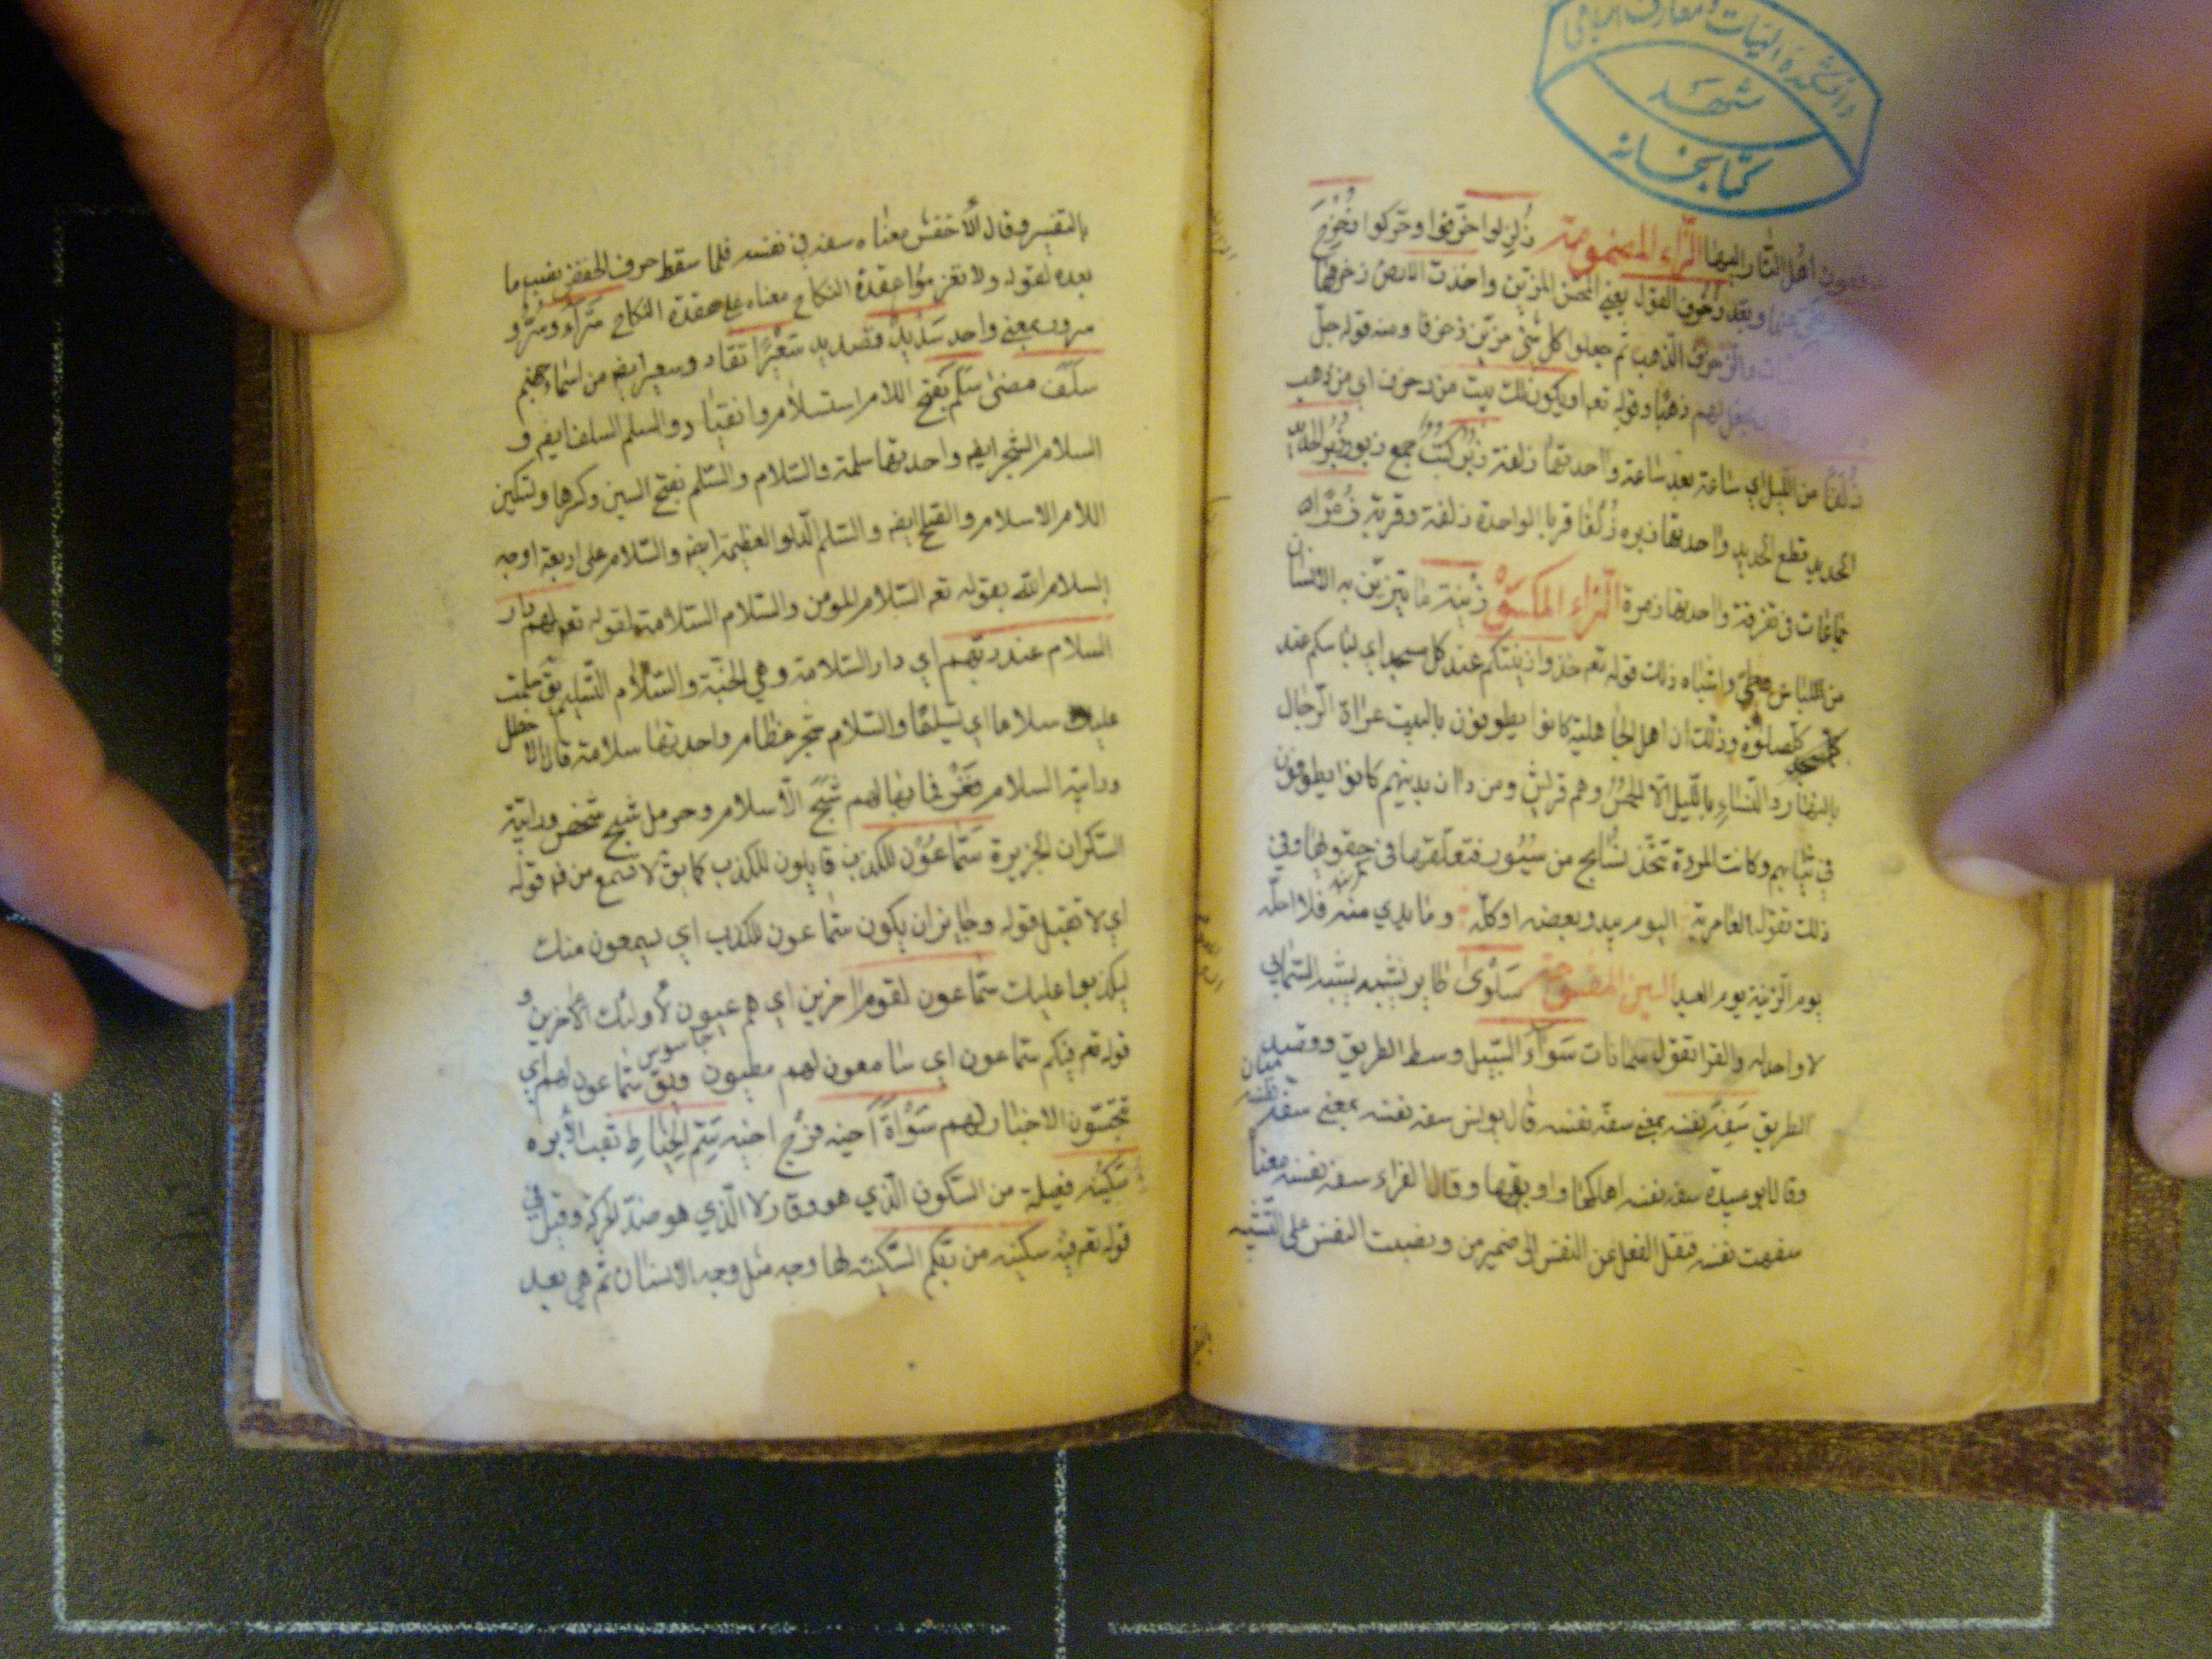 دانشکدهٔ الهیات و معارف اسلامی
مشهد
کتابخانه
اهل النار اليها الزاء المضمومة زلزلوا خوفوا وحركوا زخرف
القول يعني المحسن المزين واخذت الارض زخرفها
والزخرف الذهب ثم جعلوا كل شئ مزين زخرفا ومنه قوله جل
لهم ذهبا وقوله تعم او يكون لك بيت من زخرف اي من ذهب
زلفا من الليل اي ساعة بعد ساعة واحدتها زلفة زبر كتب جمع زبور زبر الحديد
الحديد قطع الحديد واحدتها زبره زلفا قربا الواحدة زلفة وقربة زمرا
جماعات في تفرقة واحدتها زمرة الزاء المكسورة زينة ما يتزين به الانسان
من اللباس واشباه ذلك قوله تعم خذوا زينتكم عند كل مسجد اي لباسكم عند
كل صلوة وذلك ان اهل الجاهلية كانوا يطوفون بالبيت عراة الرجال
بالنهار والنساء بالليل الا الحمس وهم قريش ومن دان بدينهم كانوا يطوفون
في ثيابهم وكانت المرءة تتخذ نسايج من سيور فتعلقها في حقويها وفي
ذلك تقول العامرية اليوم يبدو بعضه او كله وما بدي منه فلا احله
يوم الزينة يوم العيد السين المفتوحة سلوى طاير يشبه السماني
لا واحد له والفرا تقول سمانات سواء السبيل وسط الطريق وقصد
الطريق سفه نفسه بمعنى سفه نفسه قال يونس سفه نفسه بمعنى سفه
وقال ابو عبيدة سفه نفسه اهلكها واوبقها وقال الفراء سفه نفسه معناه
سفهت نفسه فنقل الفعل عن النفس الى ضمير من ونصبت النفس على التشبيه
بالتفسير وقال الأخفش معناه سفه في نفسه فلما سقط حرف الخفض نصب ما
بعده كقوله ولا تعزموا عقدة النكاح معناه على عقدة النكاح سراء
سرور بمعنى واحد سديد قصد سعيرا تقاد وسعير ايضم من اسماء جهنم
سلف مضى سلم بفتح اللام استسلام وانقياد والسلم السلف ايضم و
السلام الشجر ايضم واحدتها سلمة والسلام والسلم بفتح السين وكسرها وتسكين
اللام الاسلام والصلح ايضم والسلم الدلو العظيمة ايضم والسلام على اربعة اوجه
السلام الله بقوله تعم السلام المومن والسلام السلامة لقوله تعم لهم دار
السلام عند ربهم اي دار السلامة وهي الجنة والسلام التسليم يق سلمت
عليك سلاما اي تسليما والسلام شجر عظام واحدتها سلامة قال الاخطل
ورابية السلام شبح الاسلام وحومل شبح شخص ورابية
السكران الجزيرة سماعون للكذب قايلون للكذب كما يق لا تسمع من فلان قوله
اي لا تقبل قوله وجايز ان يكون سماعون للكذب اي يسمعون منك
ليكذبوا عليك سماعون لقوم اخرين اي هم عيون لأولئك الأخرين و
قوله تعم فيكم سماعون اي سامعون لهم مطيعون ويق سماعون لهم اي
جاسوس
تجسسون الاخبار لهم سوأة اخيه فرج اخيه سم الخياط ثقب الأبره
سكينه فعيلة من السكون الذي هو وقار لا الذي هو ضد الحركة وقيل في
قوله تعم فيه سكينه من ربكم السكينه لها وجه مثل وجه الانسان ثم هي بعد